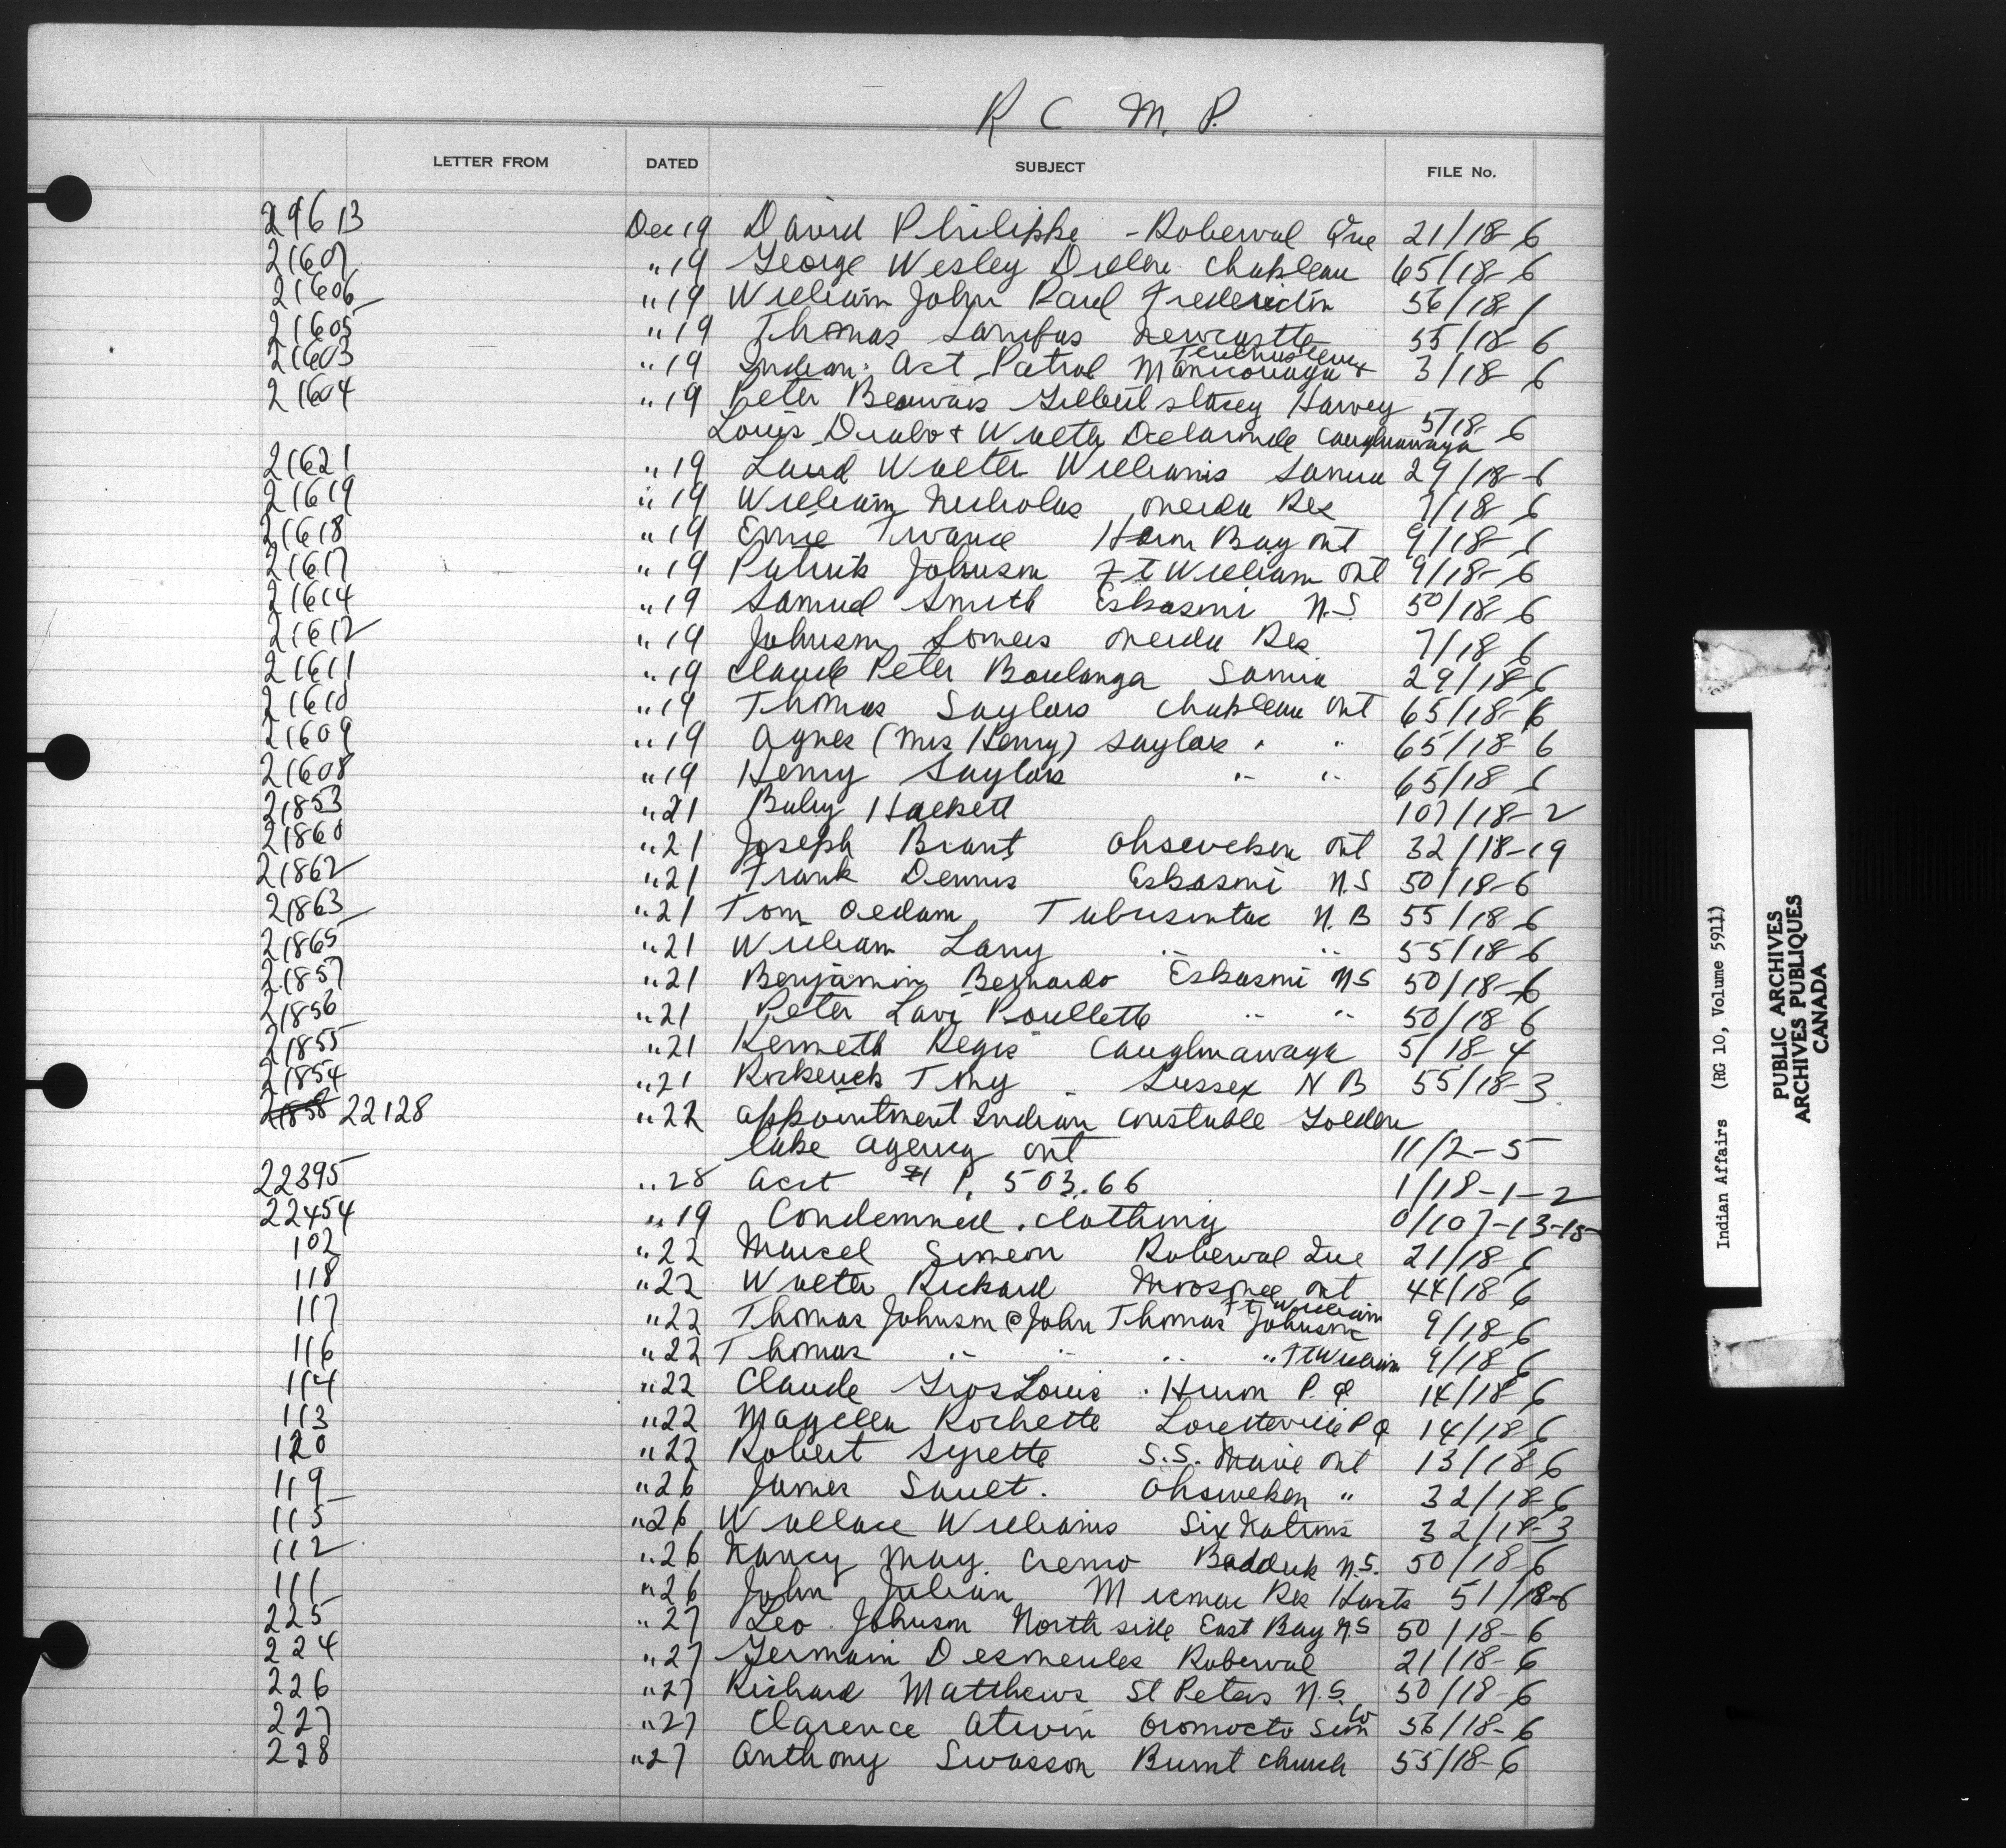 R C M. P.
LETTER FROM DATED SUBJECT FILE No.
21613 Dec 19 David Philippe - Roberval Que 21/18-6
21607 " 19 George Wesley Chapleau 65/18-6
21606 " 19 William John Paul Fredericton 56/18-1
21605 " 19 Thomas Newcastle 55/18-6
21603 " 19 Indian Act Patrol Manicouaga + 3/18-6
21604 " 19 Peter Beauvais Gilbert Stacey Harvey
Louis Diabo + Walter Delaronde Caughnawaga 5/18-6
21621 " 19 Walter Williams Sarnia 29/18-6
21619 " 19 William Nicholas Oneida Res 7/18-6
21618 " 19 Ernie Heron Bay Ont 9/18-6
21617 " 19 Patrick Johnson Ft William Ont 9/18-6
21614 " 19 Samuel Smith Eskasoni N.S. 50/18-6
21612 " 19 Johnson Somers Oneida Res 7/18-6
21611 " 19 Claude Peter Boulanga Sarnia 29/18-6
21610 " 19 Thomas Saylors Chapleau Ont 65/18-6
21609 " 19 Agnes (Mrs Henry) Saylors " " 65/18-6
21608 " 19 Henry Saylors " " 65/18-6
21853 " 21 Hackett 107/18-2
21860 " 21 Joseph Brant Ohsweken Ont 32/18-19
21862 " 21 Frank Dennis Eskasoni N.S 50/18-6
21863 " 21 Tom Aedam Tabusintac N.B 55/18-6
21865 " 21 William Larry " " 55/18-6
21857 " 21 Benjamin Bernardo Eskasoni N S 50/18-6
21856 " 21 Peter Lavi Poullette " " 50/18-6
21855 " 21 Kenneth Regis Caughnawaga 5/18-4
21854 " 21 Tony Sussex N B 55/18-3
21858 22128 " 22 Appointment Indian Constable Golden
Lake Agency Ont 11/2-5
22395 " 28 Acct 503.66 1/18-1-2
22454 " 19 Condemned clothing 0/107-13-15
102 " 22 Marcel Simeon Roberval Que 21/18-6
118 " 22 Walter Rickard Moosonee Ont 44/18-6
117 " 22 Thomas Johnson @ John Thomas Johnson Ft William 9/18-6
116 " 22 Thomas " " " " Ft William 9/18-6
114 " 22 Claude Gros Louis Huron P. Q 14/18-6
113 " 22 Magella Rochette Loretteville P Q 14/18-6
120 " 22 Robert Syrette S.S. Marie Ont 13/18-6
119 " 26 James Sault. Ohsweken " 32/18-6
115 " 26 Wallace Williams Six Nations 32/18-3
112 " 26 Nancy May Cremo Badduk N.S. 50/18-6
111 " 26 John Julian Micmac Res Hants 51/18-6
225 " 27 Leo Johnson North side East Bay N.S 50/18-6
224 " 27 Germain Desmeules Roberval 21/18-6
226 " 27 Richard Matthews St Peters N.S. 50/18-6
227 " 27 Clarence Atwin Oromocto Sun Co 56/18-6
228 " 27 Anthony Swasson Burnt Church 55/18-6
Indian Affairs (RG 10, Volume 5911)
PUBLIC ARCHIVES
ARCHIVES PUBLIQUES
CANADA